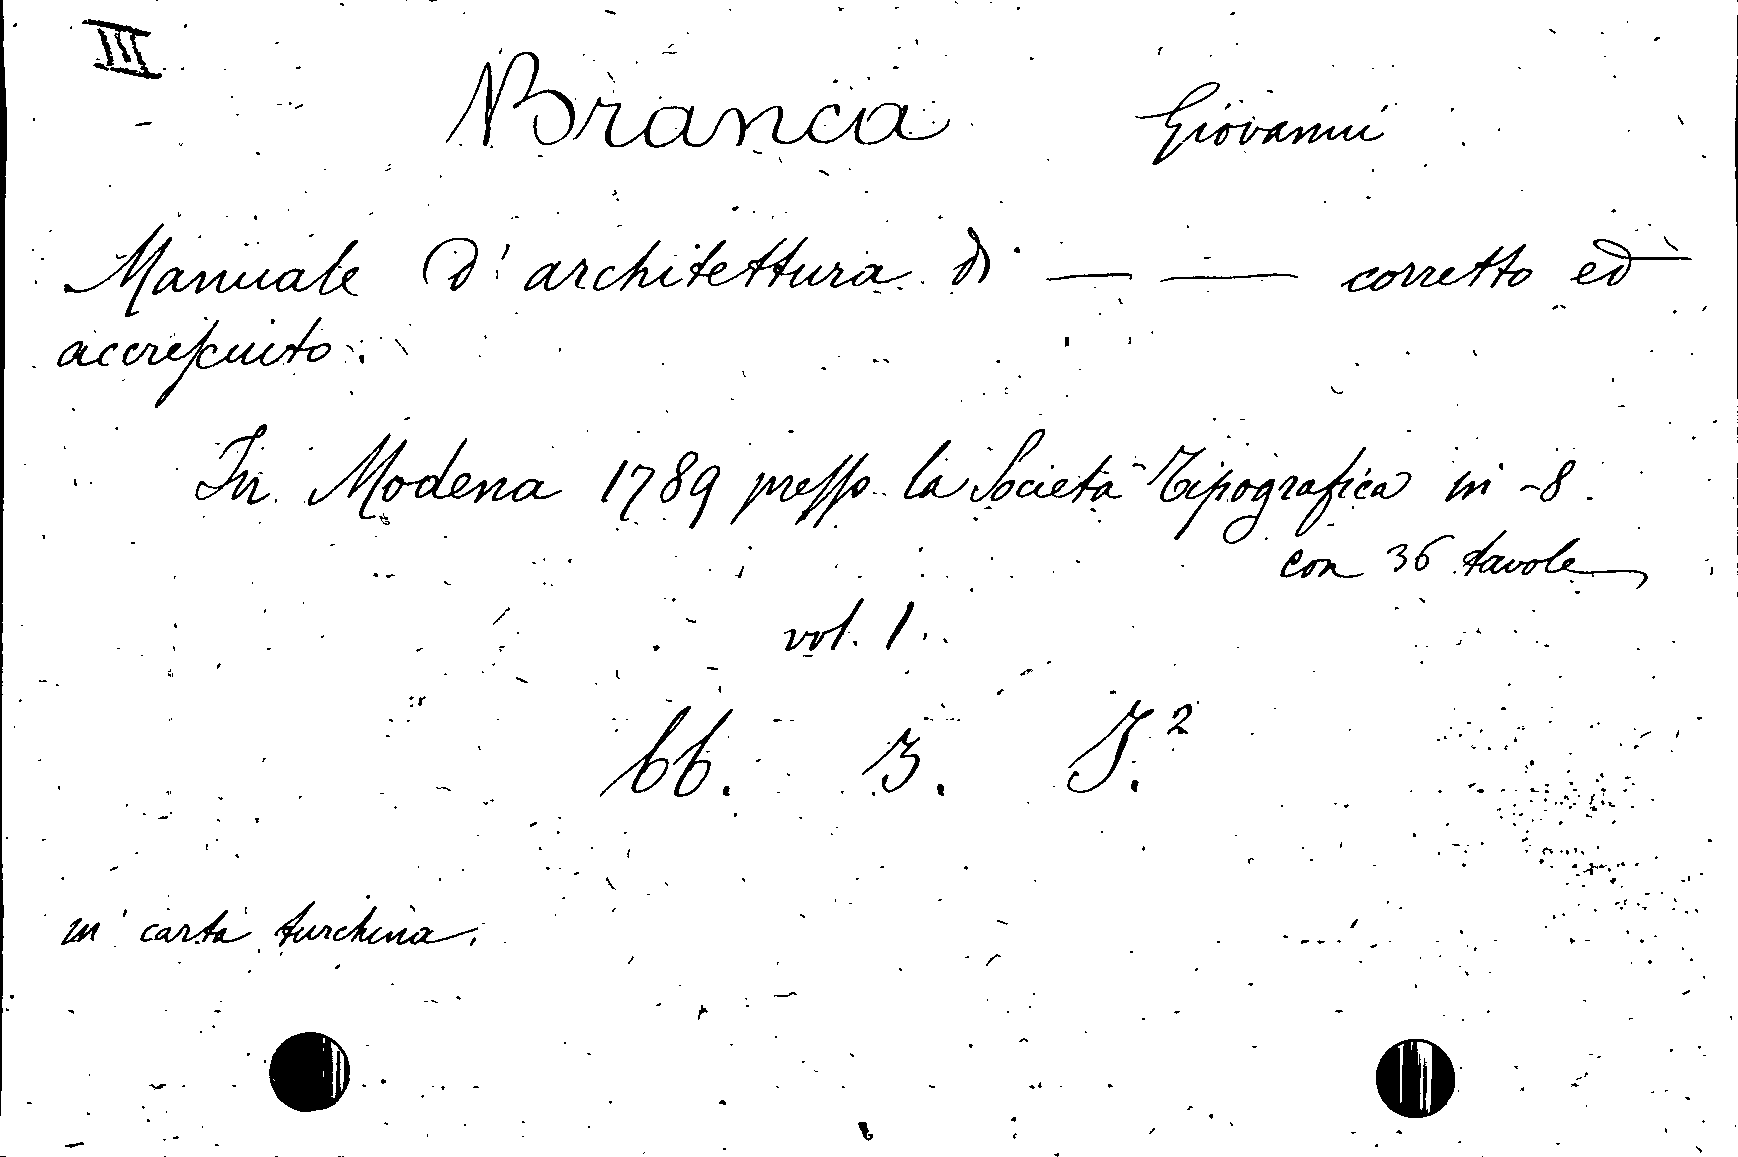 III
Branca Giovanni
Manuale d'architettura di — — corretto ed
accresciuto.
In Modena 1789 presso la Società Tipografica in-8.
con 36 tavole
vol. 1.
bb. 3. J.²
in carta turchina.